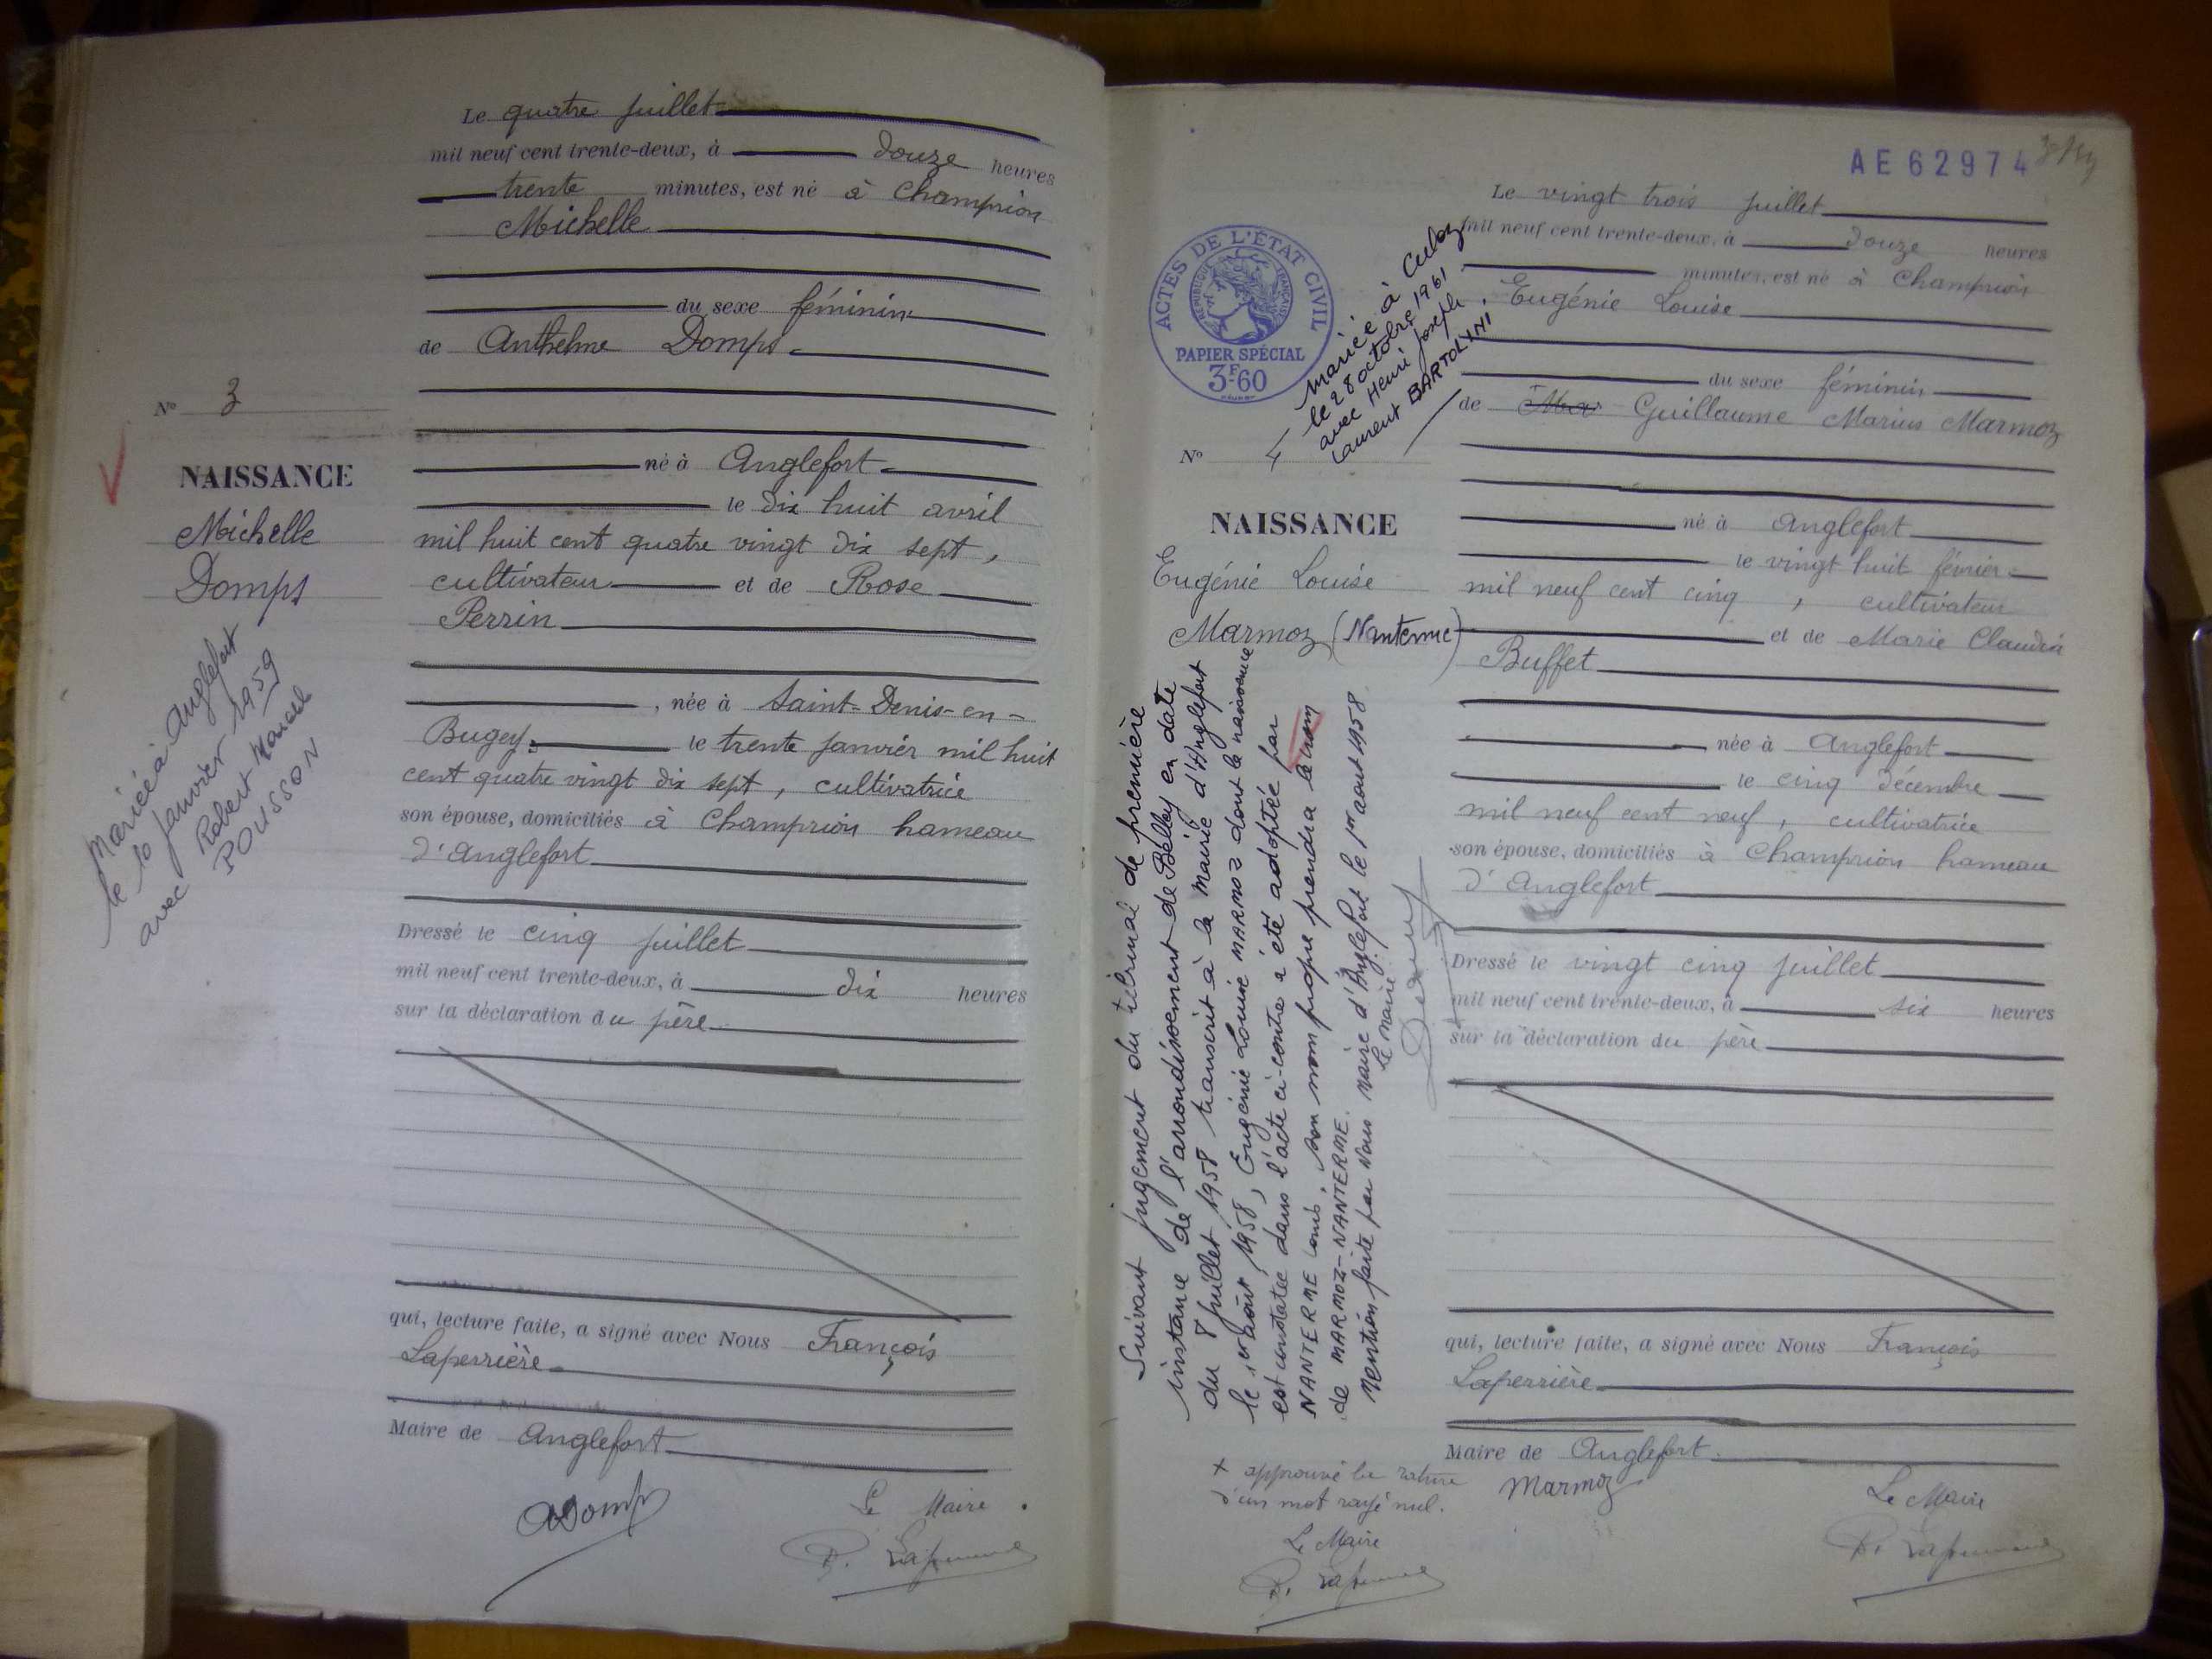 Le quatre juillet
mil neuf cent trente-deux, à douze heures
trente minutes, est né à Champrion
Michelle
du sexe féminin
de Anthelme Domps
né à Anglefort
le dix huit avril
mil huit cent quatre vingt dix sept,
cultivateur et de Rose
Perrin
, née à Saint-Denis-en-
Bugey le trente janvier mil huit
cent quatre vingt dix sept, cultivatrice
son épouse, domiciliés à Champrion hameau
d'Anglefort
Dressé le cinq juillet
mil neuf cent trente-deux, à dix heures
sur la déclaration du père
qui, lecture faite, a signé avec Nous François
Laperrière
Maire de Anglefort
ADomps
Le Maire
F. Laperrière
No 3
NAISSANCE
Michelle
Domps
Mariée à Anglefort
le 10 janvier 1959
avec Robert Marcel
POUSSON
AE 62974
Le vingt trois juillet
mil neuf cent trente-deux, à douze heures
minutes, est né à Champrion
Eugénie Louise
du sexe féminin
de Mar Guillaume Marius Marmoz
né à Anglefort
le vingt huit février
mil neuf cent cinq , cultivateur
et de Marie Claudia
Buffet
née à Anglefort
le cinq décembre
mil neuf cent neuf, cultivatrice
son épouse, domiciliés à Champrion hameau
d'Anglefort
Dressé le vingt cinq juillet
mil neuf cent trente-deux, à six heures
sur la déclaration du père
qui, lecture faite, a signé avec Nous François
Laperrière
Maire de Anglefort
Marmoz
Le Maire
F. Laperrière
ACTES DE L'ÉTAT CIVIL
RÉPUBLIQUE FRANÇAISE
PAPIER SPÉCIAL
3F60
Mariée à Culoz
le 28 octobre 1961
avec Henri Joseph
Laurent BARTOLINI
No 4
NAISSANCE
Eugénie Louise
Marmoz (Nanterme)
Suivant jugement du tribunal de première
instance de l'arrondissement de Belley en date
du 8 juillet 1958 transcrit à la Mairie d'Anglefort
le 1er août 1958, Eugénie Louise MARMOZ dont la naissance
est constatée dans l'acte ci-contre a été adoptée par
NANTERME Louis, son nom propre prendra le nom
de MARMOZ-NANTERME.
Mention faite par Nous Maire d'Anglefort le 1er août 1958
Le Maire
+ approuvé la rature
d'un mot rayé nul.
Le Maire
F. Laperrière